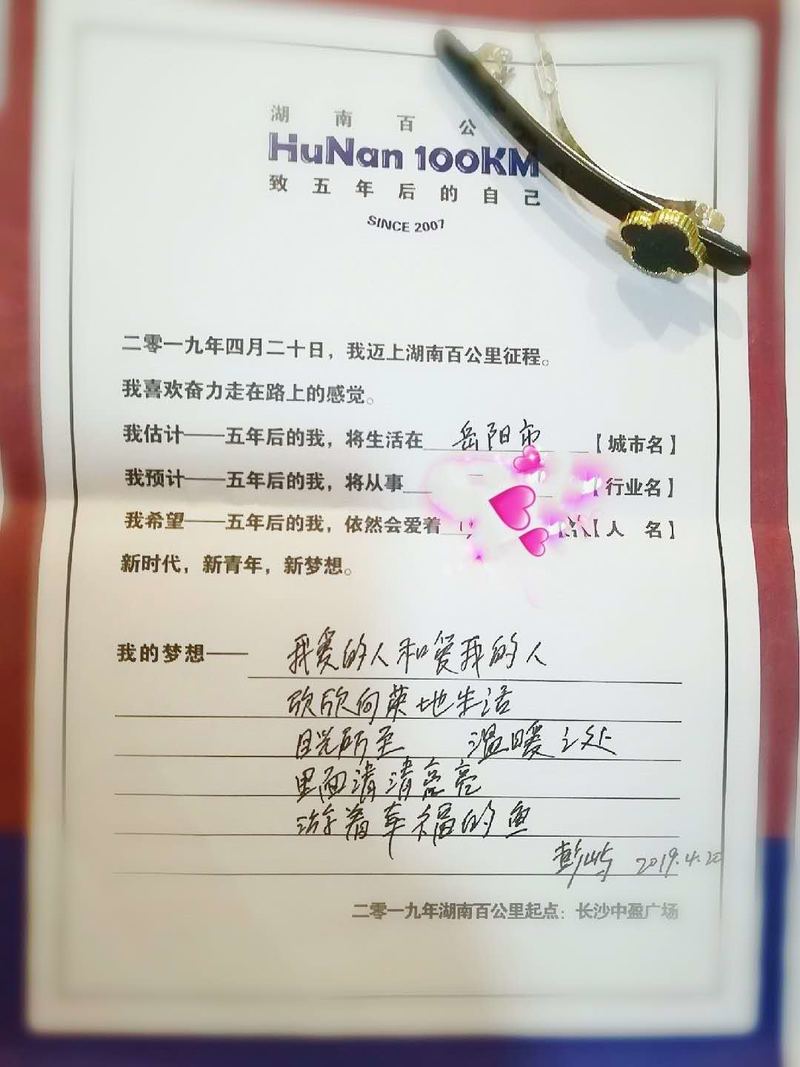 湖南百公
HuNan 100KM
致五年后的自己
SINCE 2007
二零一九年四月二十日，我迈上湖南百公里征程。
我喜欢奋力走在路上的感觉。
我估计——五年后的我，将生活在 岳阳市 【城市名】
我预计——五年后的我，将从事 【行业名】
我希望——五年后的我，依然会爱着 【人 名】
新时代，新青年，新梦想。
我的梦想—— 我爱的人和爱我的人
欣欣向荣地生活
目光所至 温暖之处
里面清清亮亮
游着幸福的鱼
彭屿 2019.4.20
二零一九年湖南百公里起点：长沙中盈广场